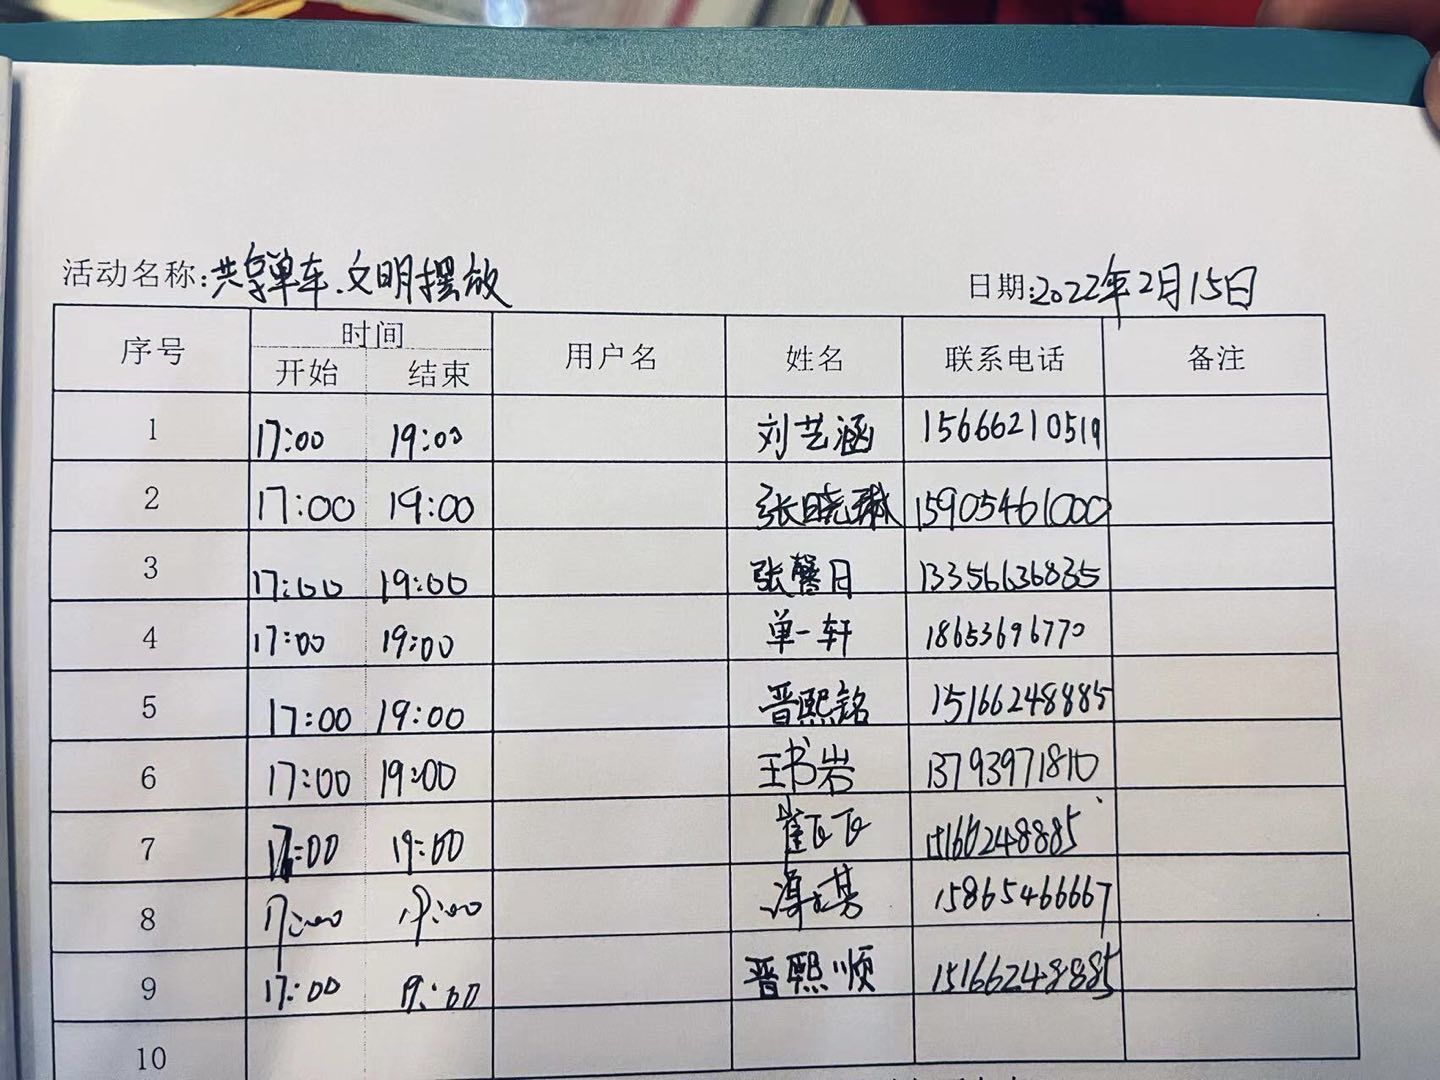 活动名称:共享单车.文明摆放 日期:2022年2月15日
序号 时间 用户名 姓名 联系电话 备注
开始 结束
1 17:00 19:00 刘艺涵 15666210519
2 17:00 19:00 张晓琳 15905461000
3 17:00 19:00 张馨月 13356636835
4 17:00 19:00 单一轩 18653696770
5 17:00 19:00 晋熙铭 15166248885
6 17:00 19:00 王书岩 13793971810
7 17:00 19:00 崔 15166248885
8 17:00 19:00 15865466667
9 17:00 19:00 晋熙顺 15166248885
10